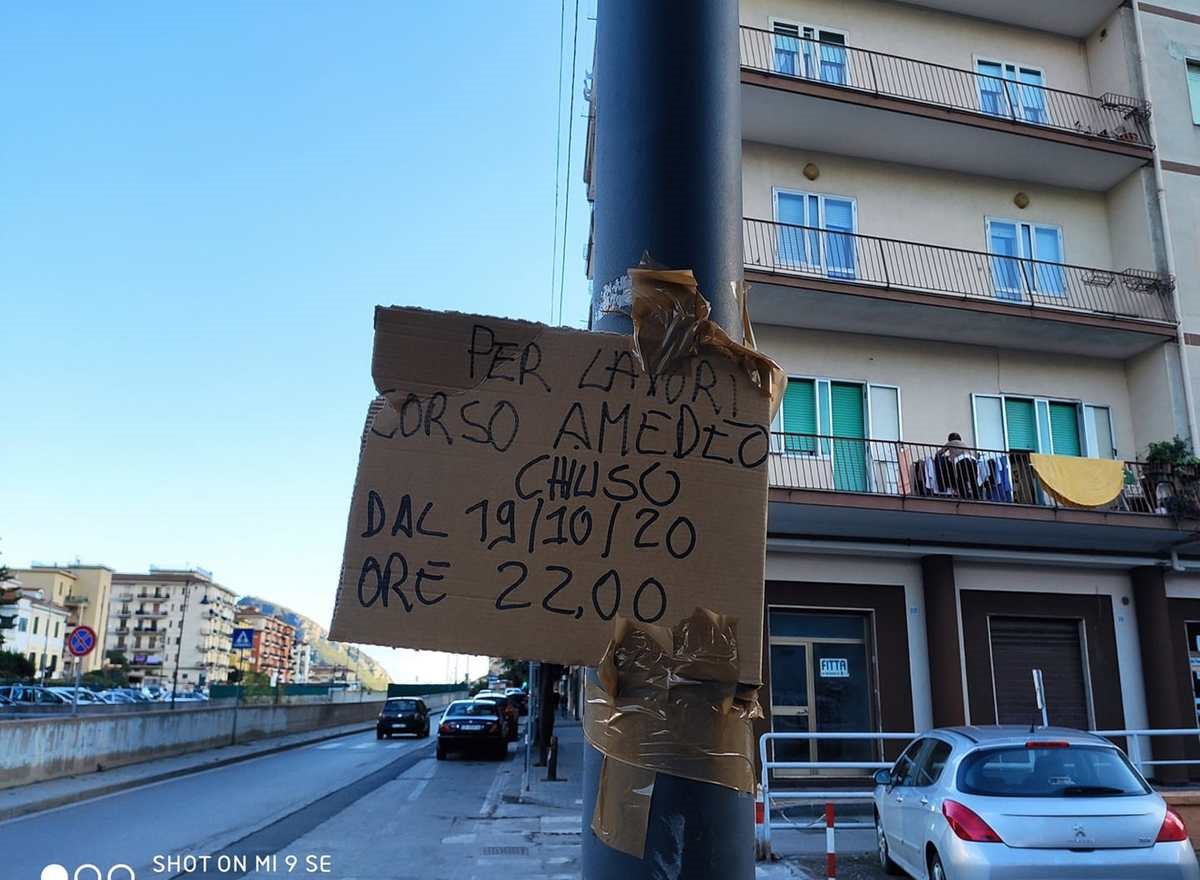 PER LAVORI
CORSO AMEDEO
CHIUSO
DAL 19/10/20
ORE 22,00
FITTA
SHOT ON MI 9 SE